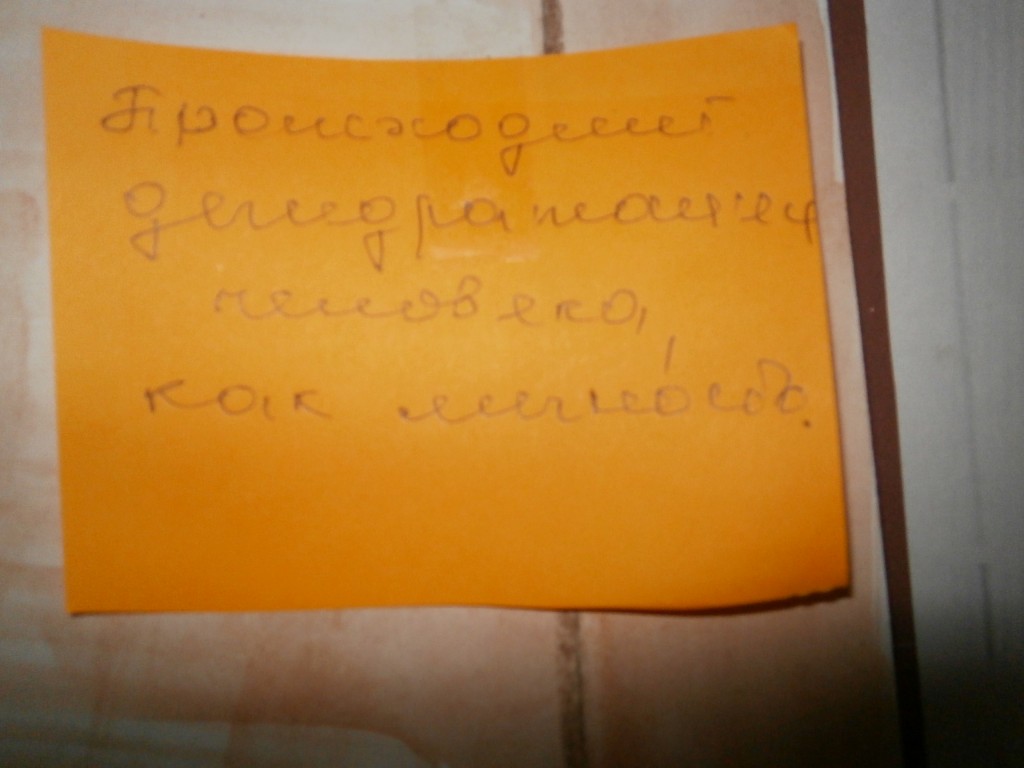 Происходит
дегидратация
человека,
как личность.